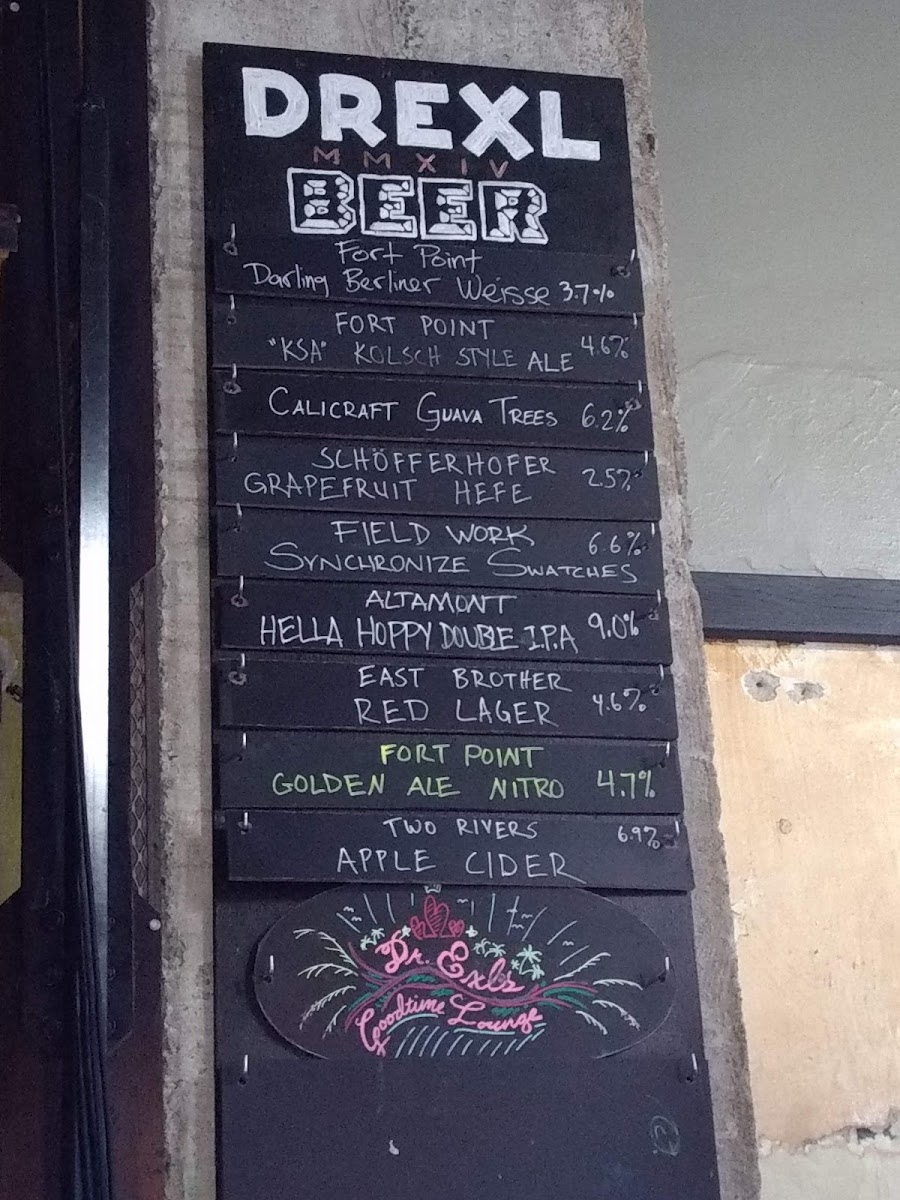 DREXL
MMXIV
BEER
Fort Point
Darling Berliner Weisse 3.7%
FORT POINT
"KSA" KOLSCH STYLE ALE 4.6%
CALICRAFT GUAVA TREES 6.2%
SCHÖFFERHOFER
GRAPEFRUIT HEFE 2.5%
FIELD WORK
SYNCHRONIZE SWATCHES 6.6%
ALTAMONT
HELLA HOPPY DOUBLE I.P.A 9.0%
EAST BROTHER
RED LAGER 4.6%
FORT POINT
GOLDEN ALE NITRO 4.7%
TWO RIVERS 6.9%
APPLE CIDER
Dr. Exls
Goodtime Lounge